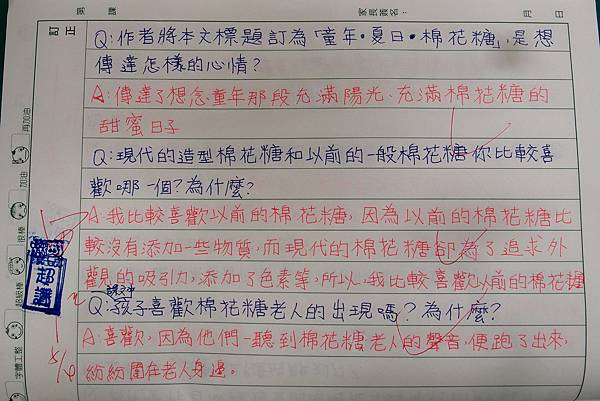 第 課 家長簽名： 月 日
訂正
Q：作者將本文標題訂為「童年·夏日·棉花糖」，是想
傳達怎樣的心情？
A：傳達了想念童年那段充滿陽光、充滿棉花糖的
甜蜜日子
Q：現代的造型棉花糖和以前的一般棉花糖你比較喜
歡哪一個？為什麼？
A：我比較喜歡以前的棉花糖，因為以前的棉花糖比
較沒有添加一些物質，而現代的棉花糖卻為了追求外
觀的吸引力，添加了色素等，所以，我比較喜歡以前的棉花糖
Q：孩子喜歡棉花糖老人的出現嗎？為什麼？
A：喜歡，因為他們一聽到棉花糖老人的聲音，便跑了出來，
紛紛圍在老人身邊。
再加油
加油
很棒
超級棒
字體工整